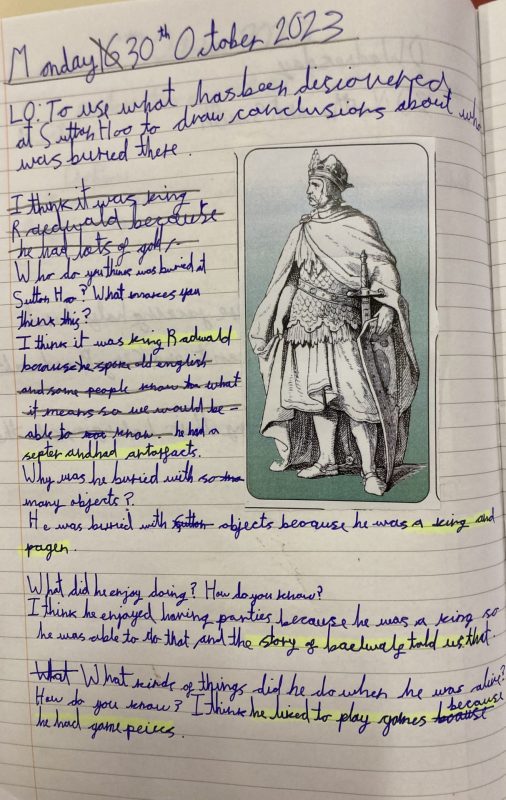 Monday 16 30th October 2023
LO: To use what has been discovered
at Sutton Hoo to draw conclusions about who
was buried there.
I think it was king
Raedwald because
he had lots of gold,
Who do you think was buried at
Sutton Hoo? What makes you
think this?
I think it was king Radwald
because he spoke old english
and some people know what
it means so we would be
able to know. he had a
septer and had artarfacts.
Why was he buried with so
many objects?
He was buried with Sutton objects because he was a king and
pagen.
What did he enjoy doing? How do you know?
I think he enjoyed having parties because he was a king so
he was able to do that, and the story of told us that.
What What kinds of things did he do when he was alive?
How do you know? I think he liked to play games because
he had game peices.